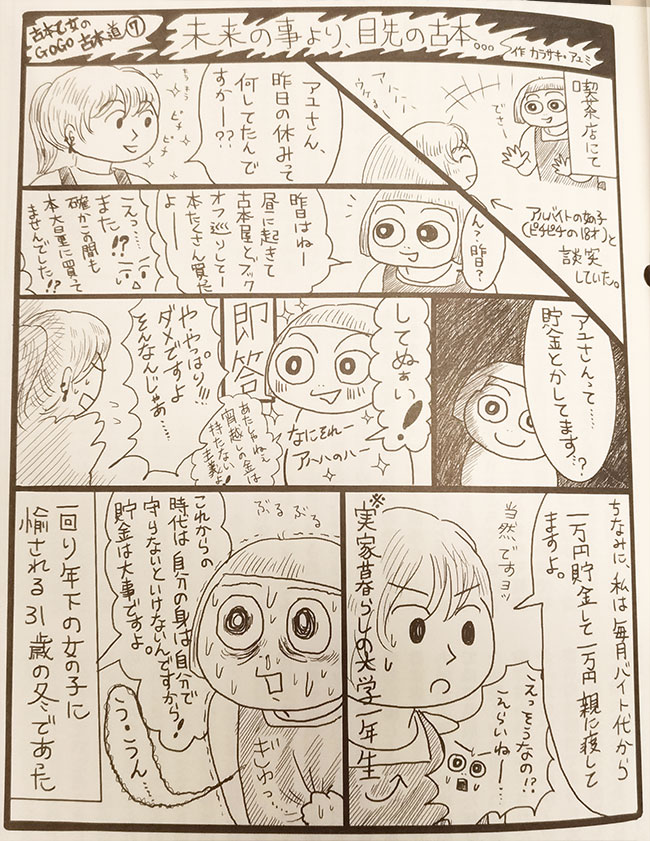 古本乙女の
GOGO古本道⑦
未来の事より、目先の古本…
作 カラサキ・アユミ
喫茶店にて
でさー
アハハハ
ウケるー
アルバイトの女の子
(ピチピチの18才)と
談笑
していた。
アユさん、
昨日の休みって
何してたんで
すかー??
キラキラ
ピチ
ピチ
ん?昨日?
昨日はねー
昼に起きて
古本屋とブック
オフ巡りしてー
本たくさん買た
よー
えっ…
また!?
確かこの間も
本大量に買って
ませんでした!?
アユさんって……
貯金とかしてます…?
してぬぇい!
なにそれー
アハハのハー
即答
あたしゃねぇ
宵越しの金は
持たない
主義よ
や・やっぱり!!!
ダメですよ
そんなんじゃあ……
ちなみに、私は毎月バイト代から
一万円貯金して一万円親に渡して
ますよ。
当然ですヨッ
えっそうなの!?
えらいねー…
※実家暮らしの大学一年生
ぶるぶる
これからの
時代は自分の身は自分で
守らないといけないんですから!
貯金は大事ですよ。
う・うん…
ぎゅっ…
一回り年下の女の子に
愉される31歳の冬であった